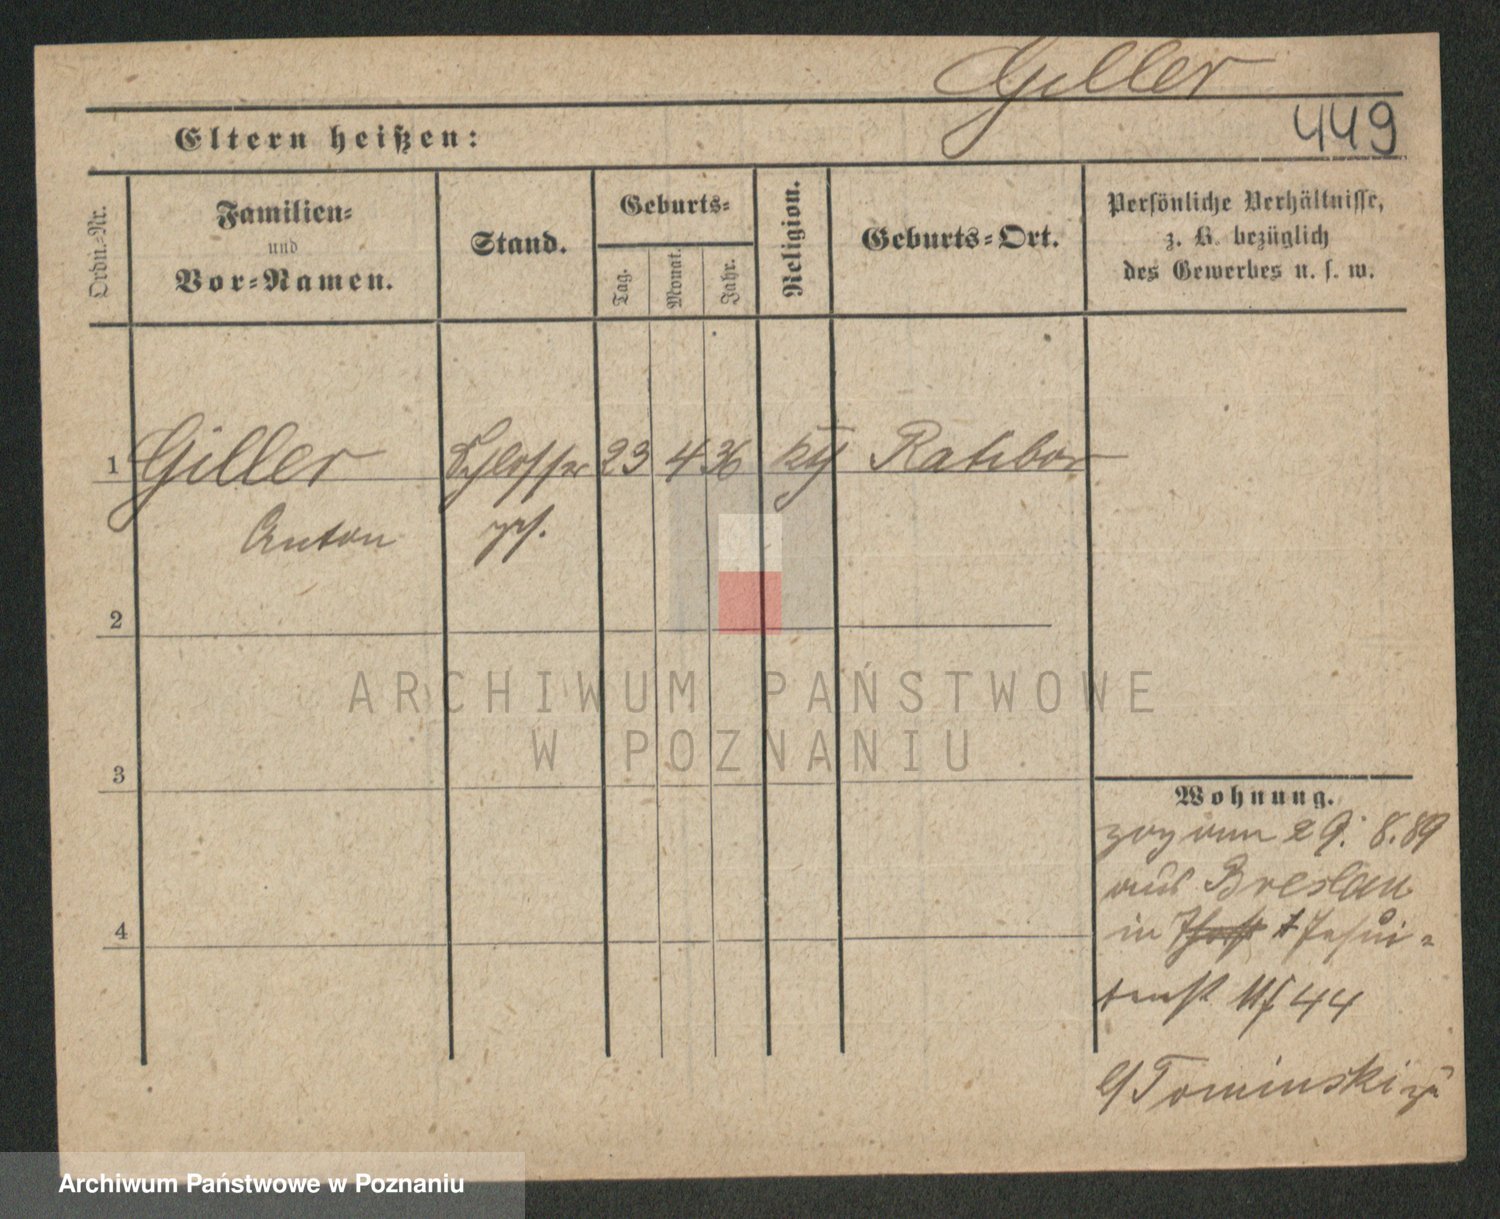 Giller
449
Eltern heißen:
Ordn.-Nr.
Familien-
und
Vor-Namen.
Stand.
Geburts-
Tag.
Monat.
Jahr.
Religion.
Geburts-Ort.
Persönliche Verhältnisse,
z. B. bezüglich
des Gewerbes u. s. w.
1 Giller Schlosser 23 4 36 Ratibor
Anton
2
3
4
Wohnung.
zog am 29. 8. 89
aus Breslau
in Jesui-
tenst 44
Tominski
ARCHIWUM PAŃSTWOWE
W POZNANIU
Archiwum Państwowe w Poznaniu